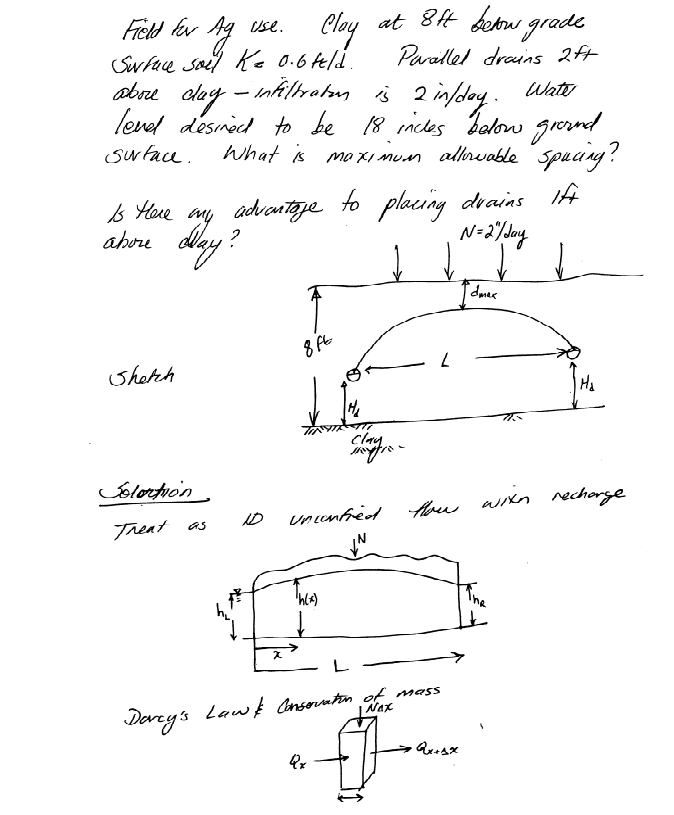 Field for Ag use. Clay at 8ft below grade
Surface soil K = 0.6 ft/d. Parallel drains 2ft
above clay – infiltration is 2 in/day. Water
level desired to be 18 inches below ground
surface. What is maximum allowable spacing?
Is there any advantage to placing drains 1ft
above clay?
N=2"/day
dmax
8 ft
L
Sketch
Hd
Hd
Clay
Solution
Treat as 1D unconfined flow with recharge
N
hL
h(x)
hR
x
L
Darcy's Law & Conservation of mass
NΔx
Qx
Qx+Δx